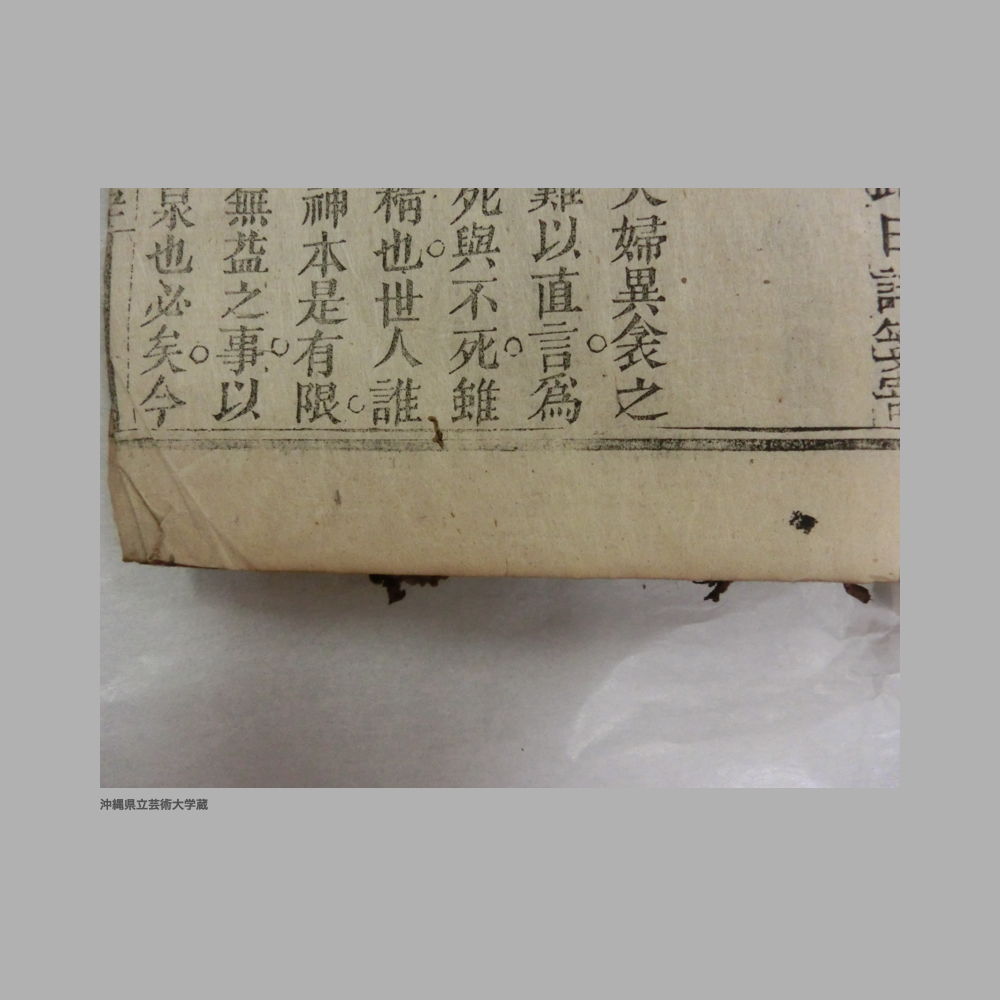 夫婦異衾之
難以直言爲
死與不死雖
精也世人誰
神本是有限
無益之事以
泉也必矣今
沖縄県立芸術大学蔵